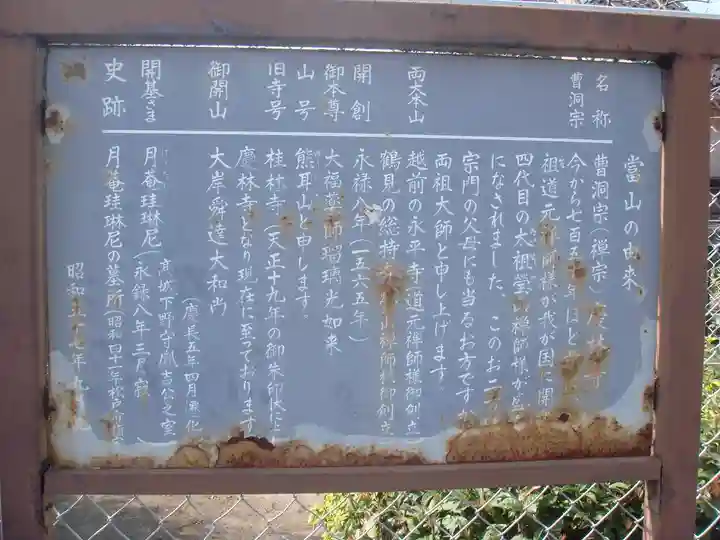 當山の由来
名称 曹洞宗(禅宗)慶林寺
曹洞宗 今から七百五十年ほど
祖道元禅師様が我が国に開
四代目の太祖瑩山禅師様が
になされました、このお二
宗門の父母にも当るお方ですか
両祖大師と申し上げます。
両大本山 越前の永平寺(道元禅師様御創立)
鶴見の総持寺(瑩山禅師様御創立)
開創 永禄八年(一五六五年)
御本尊 大福薬師瑠璃光如来
山号 熊耳山と申します。
旧寺号 桂林寺(天正十九年の御朱印状によ
慶林寺となり現在に至っております
御開山 大岸舜達大和尚
(慶長五年四月遷化
開基さま 月菴珪琳尼(永録八年三月寂)
高城下野守胤吉公之室
史跡 月菴珪琳尼の墓所(昭和四十一年松戸市
昭和五十七年九